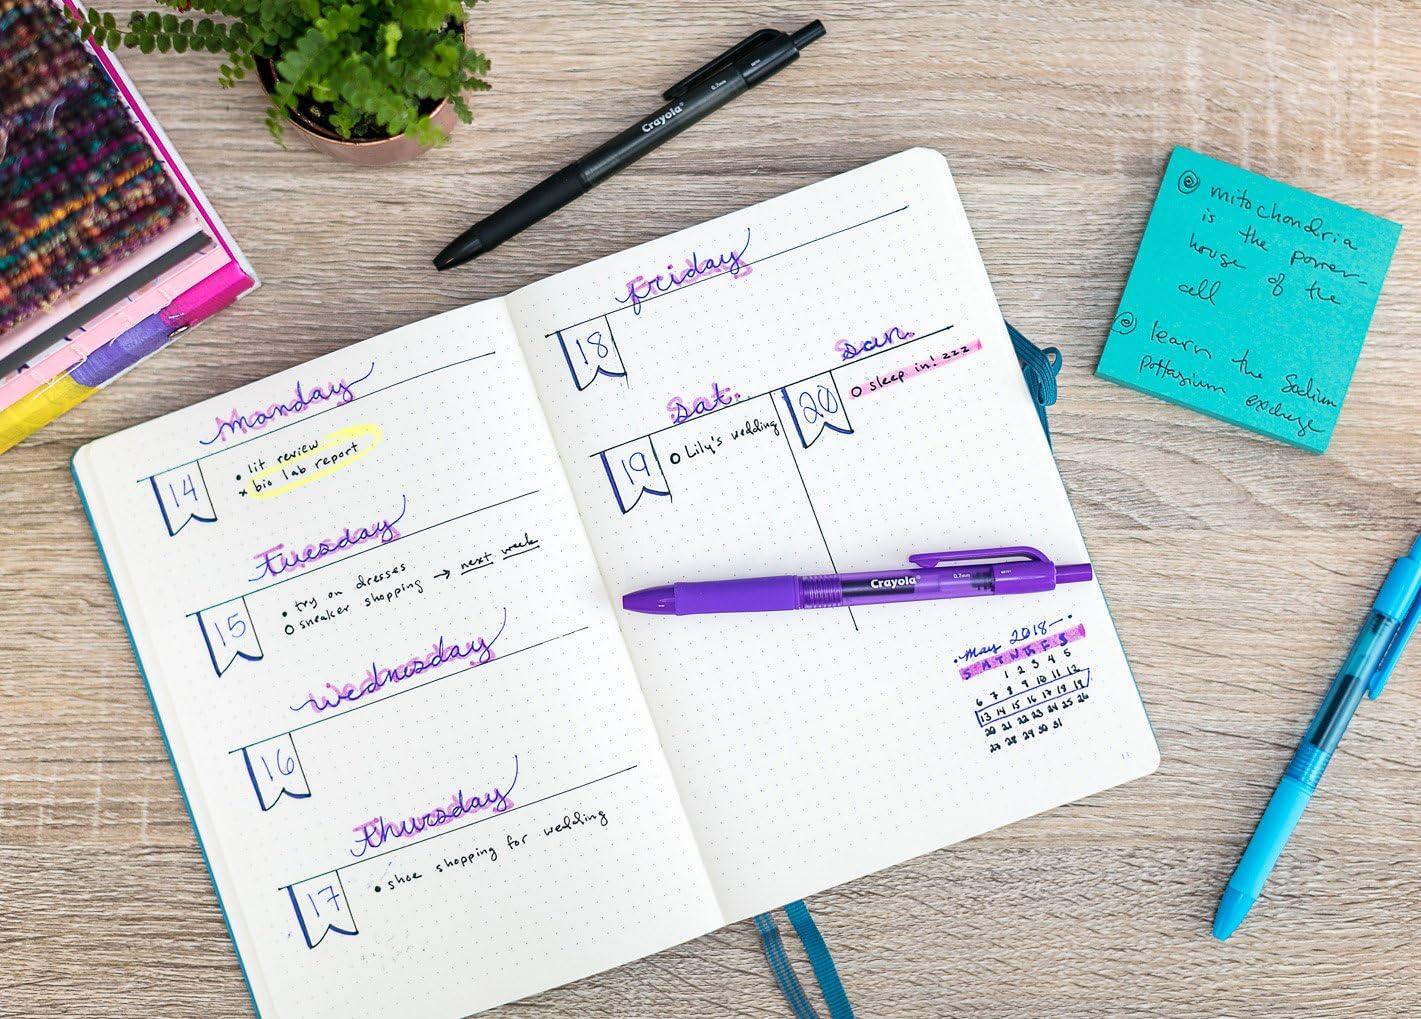 Crayola 0.7mm
Monday
14
• lit review
x bio lab report
Tuesday
15
• try on dresses
O sneaker shopping → next week
Wednesday
16
Thursday
17
• shoe shopping for wedding
Friday
18
Sat.
19
O Lily's wedding
Sun.
20
O sleep in! zzz
Crayola 0.7mm
May 2018
S M T W T F S
1 2 3 4 5
6 7 8 9 10 11 12
13 14 15 16 17 18 19
20 21 22 23 24 25 26
27 28 29 30 31
mitochondria
is the power-
house of the
cell
learn the Sodium
pottasium exchange